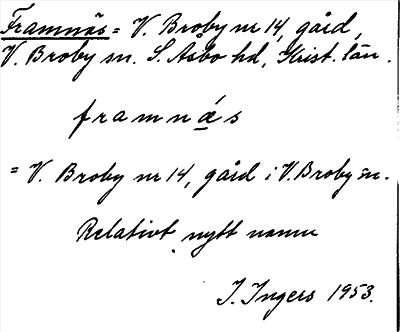 Framnäs = V. Broby nr 14, gård,
V. Broby sn. S. Åsbo hd, Krist. län.
framnä́s
= V. Broby nr 14, gård i V. Broby sn.
Relativt nytt namn
I. Ingers 1953.